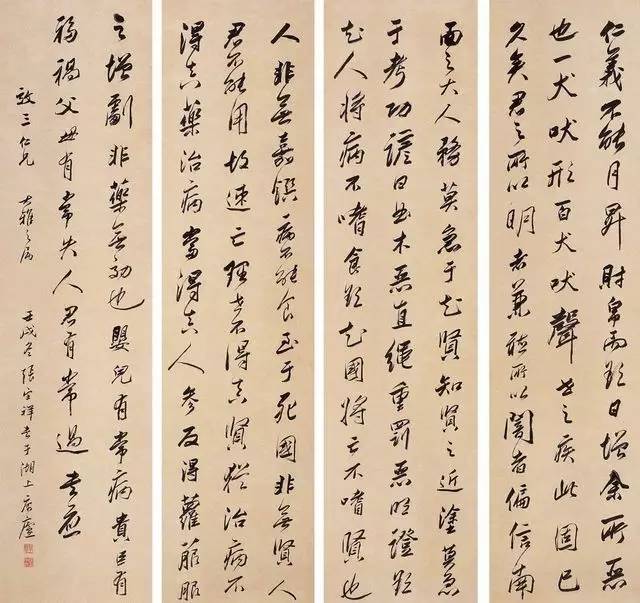 仁義不能月昇財帛而欲日增余所惡
也一犬吠形百犬吠聲世之疾此固已
久矣君之所以明者兼聽所以闇者偏信南
面之大人務莫急于知賢知賢之近塗莫急
于考功諺曰曲木惡直繩重罰惡明證欲
知人將病不嗜食欲知國將亡不嗜賢也
人非無嘉饌病不能食至于死國非無賢人
君不能用故速亡理世不得真賢猶治病不
得真藥治病當得真人參反得蘿菔服
之增劇非藥無功也嬰兒有常病貴臣有
禍父母有常失人君有常過書應
三仁兄大雅之屬
壬戌冬張宗祥書于湖上廬